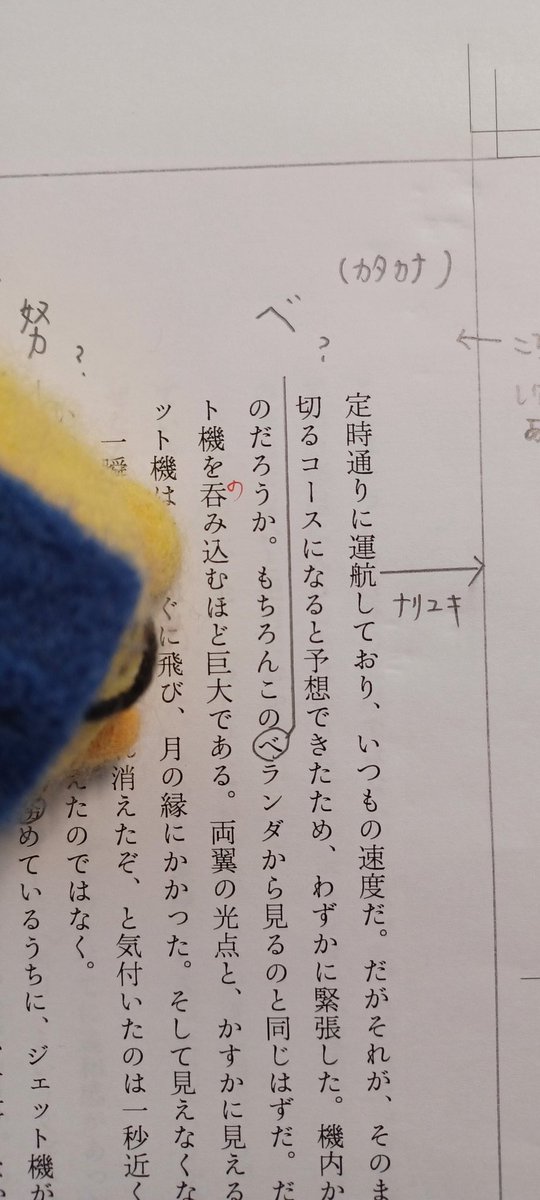 (カタカナ)
ベ ?
努 ?
定時通りに運航しており、いつもの速度だ。だがそれが、そのま
ナリユキ
切るコースになると予想できたため、わずかに緊張した。機内か
のだろうか。もちろんこのベランダから見るのと同じはずだ。だ
ト機を呑み込むほど巨大である。両翼の光点と、かすかに見える
の
ット機は
ぐに飛び、月の縁にかかった。そして見えなくな
一瞬
消えたぞ、と気付いたのは一秒近く
えたのではなく。
めているうちに、ジェット機が